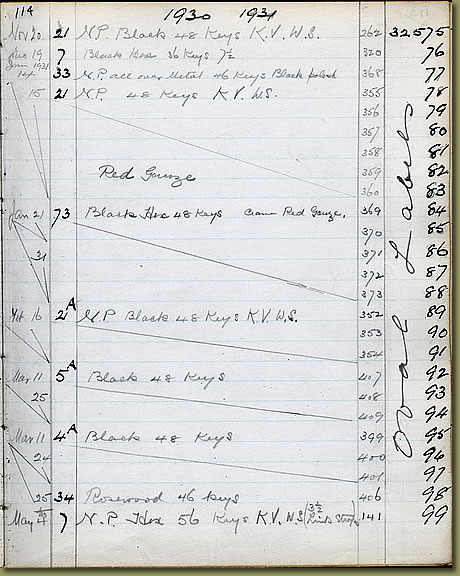 114 1930 1931
Nov 20 21 N.P. Black 48 Keys K.V. W.S. 262 32575
Dec 19 7 Black Hex 36 Keys 7½ 320 76
Jan 1931 14 33 N.P. all over Metal 46 Keys Black polish 368 77
15 21 N.P. 48 Keys K.V. W.S. 355 78
356 79
357 80
358 81
Red Gauze 359 82
360 83
Jan 21 73 Black Hex 48 Keys Red Gauze. 369 84
370 85
31 371 86
372 87
373 88
Feb 16 21 A N.P. Black 48 Keys K.V. W.S. 352 89
353 90
354 91
Mar 11 5 A Black 48 Keys 407 92
25 408 93
409 94
Mar 11 4 A Black 48 Keys 399 95
24 400 96
401 97
25 34 Rosewood 46 Keys 406 98
May 7 N.P. Hex 56 Keys K.V. W.S. (3½ 141 99
Oval Labels